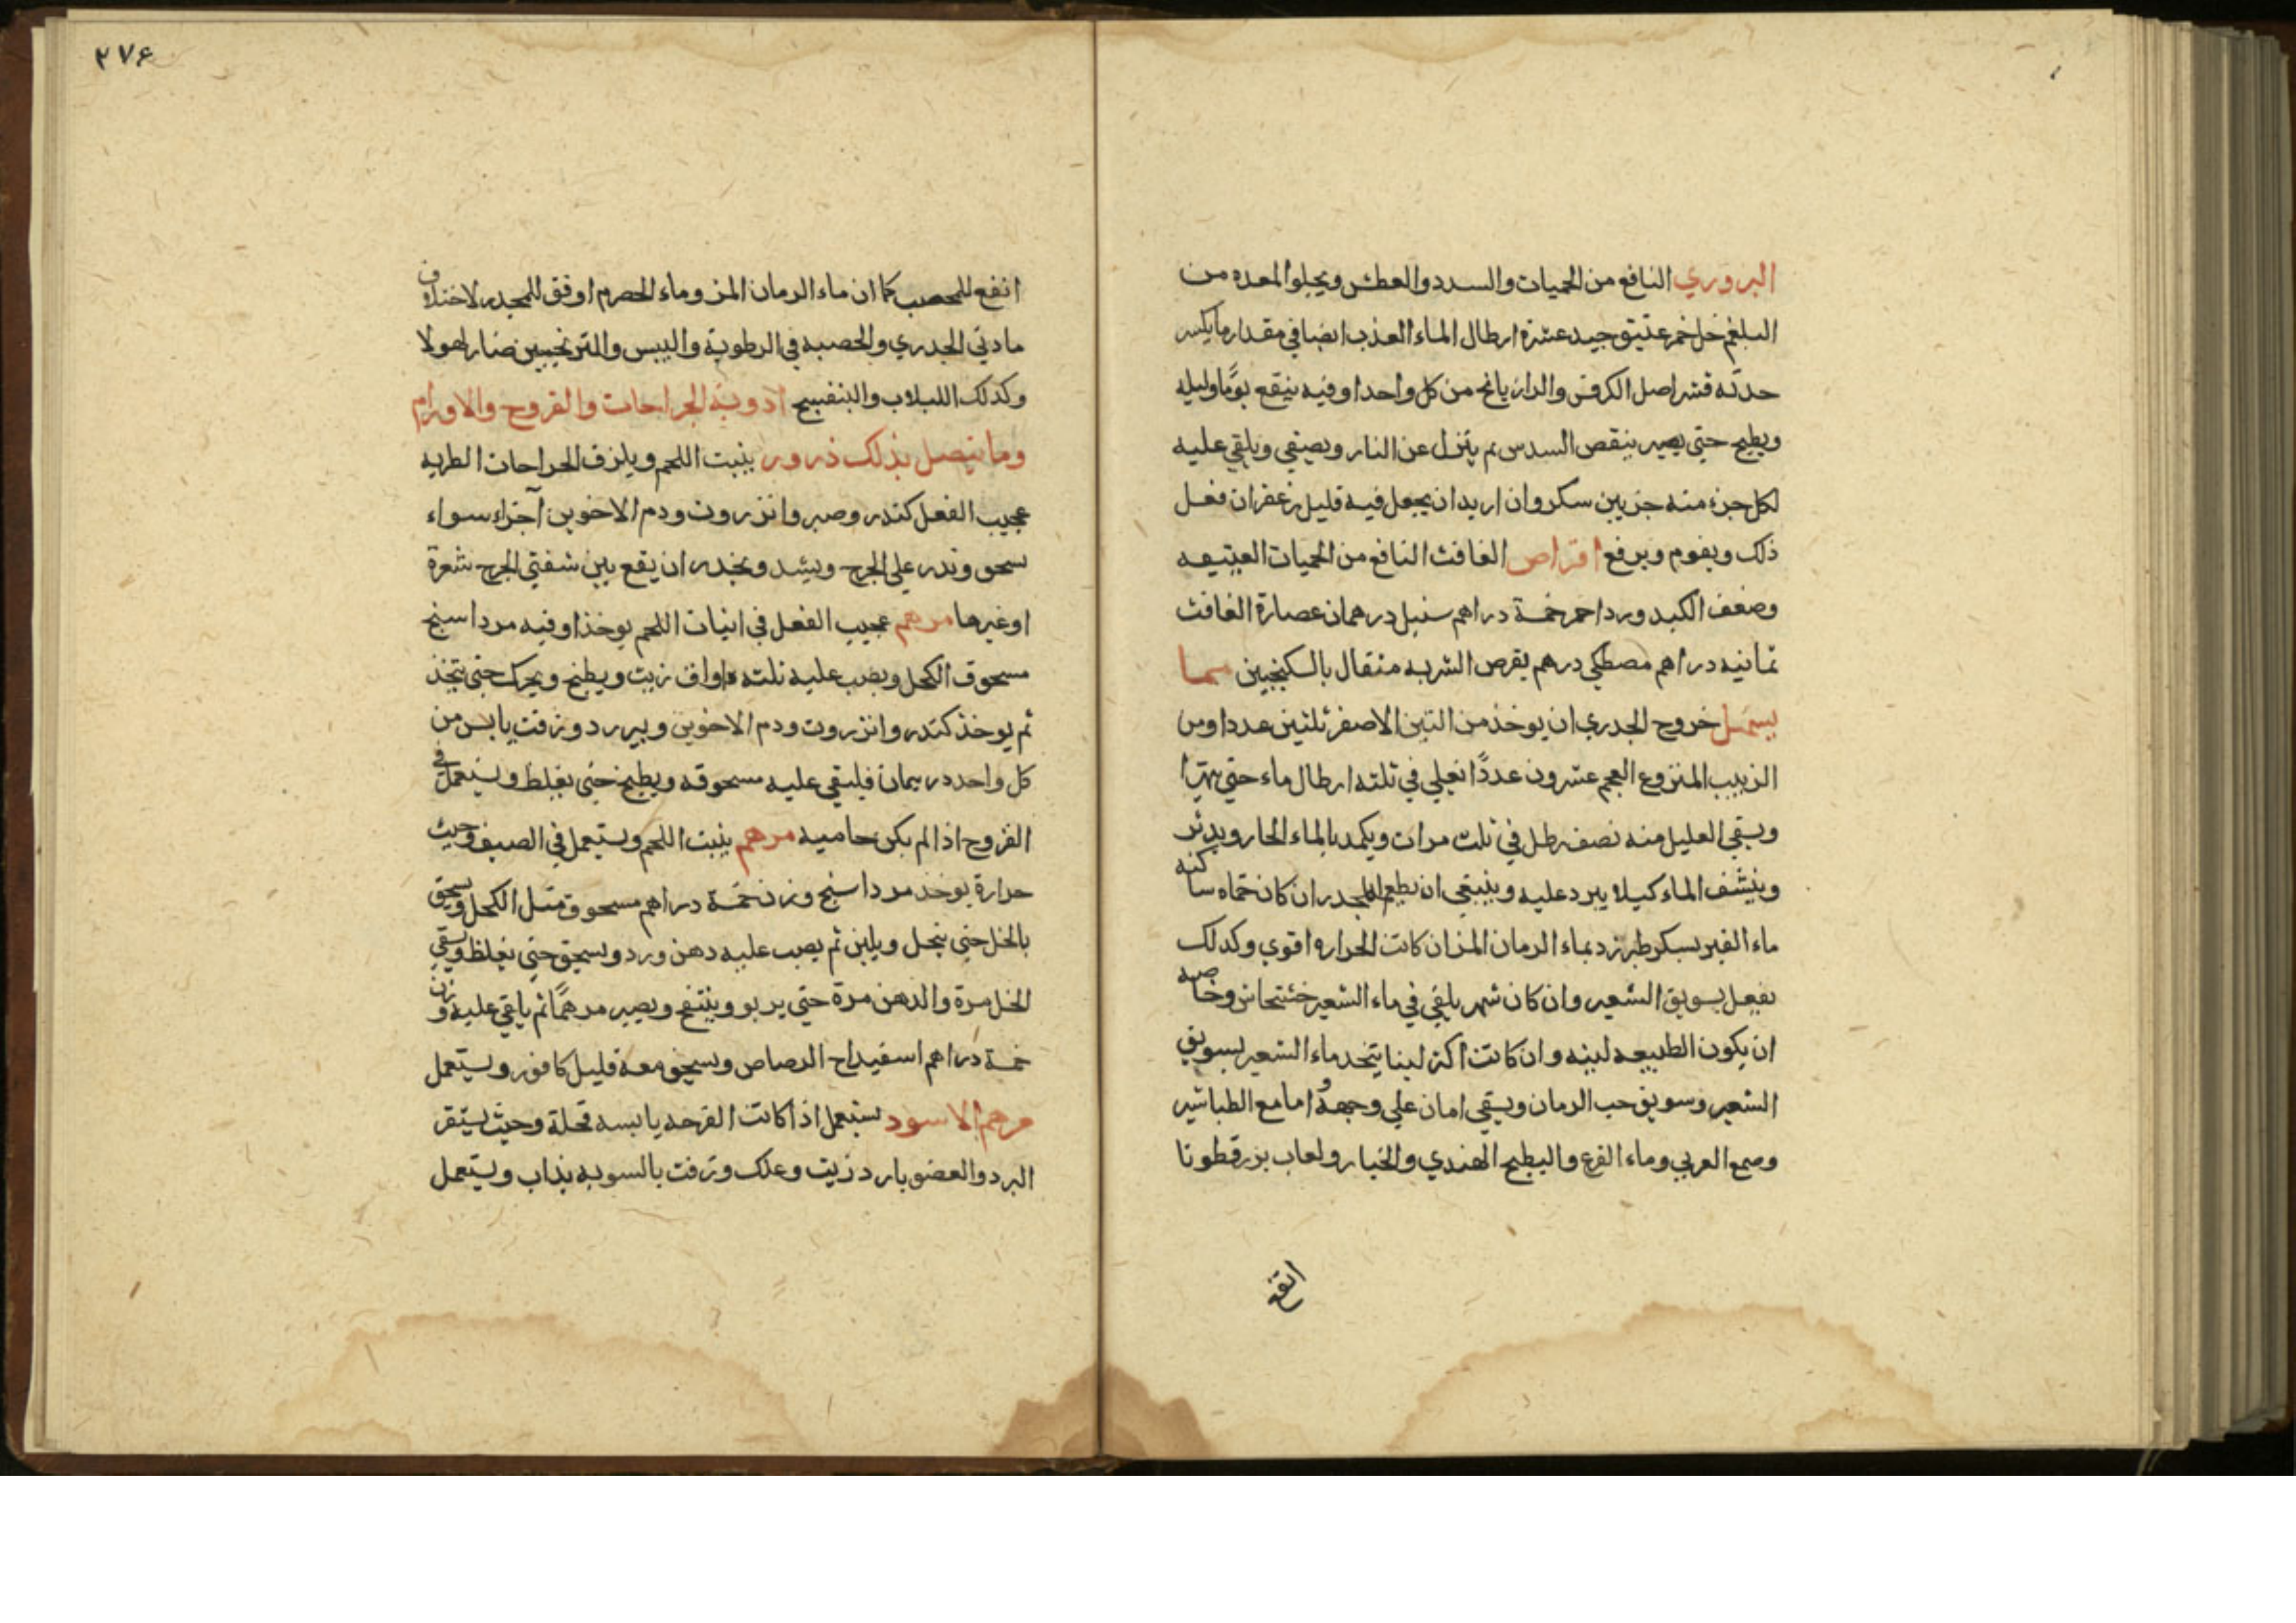 البزوري النافع من الحميات والسدد والعطش ويجلو المعده من
البلغم خل خمر عتيق جيد عشرة ارطال الماء العذب ايضا في مقدار ما يكسر
حدته قشر اصل الكرفس والرازيانج من كل واحد اوقيه ينقع يوما وليله
ويطبخ حتي يصير ينقص السدس ثم ينزل عن النار ويصفي ويلقي عليه
لكل جزء منه جزيين سكر وان اريد ان يجعل فيه قليل زعفران فعل
ذلك ويقوم ويرفع اقراص الغافث النافع من الحميات العتيقه
وضعف الكبد ورد احمر خمسة دراهم سنبل درهمان عصارة الغافث
ثمانيه دراهم مصطكي درهم يقرص الشربه مثقال بالسكنجبين مما
يسهل خروج الجدري ان يوخذ من التين الاصفر ثلثين عددا ومن
الزبيب المنزوع العجم عشرون عددًا يغلي في ثلثه ارطال ماء حتي يتهرا
ويسقي العليل منه نصف رطل في ثلث مرات ويكمد بالماء الحار ويدثر
وينشف الماء كيلا يبرد عليه وينبغي ان يطعم المجدر ان كان حماه ساكنه
ماء الشعير بسكر طبرزد بماء الرمان المز ان كانت الحراره اقوي وكدلك
يفعل بسويق الشعير وان كان سهر يلقي في ماء الشعير خشخاش وخاصه
ان يكون الطبيعه لينه وان كانت اكثر لينا يتخد ماء الشعير بسويق
الشعير وسويق حب الرمان ويسقي امان علي وجهه اما مع الطباشير
وصمع العربي وماء القرع والبطيخ الهندي والخيار ولعاب بزرقطونا
انفع
٢٧۶
انفع للمحصب كما ان ماء الرمان المز وماء الحصرم اوفق للمجدر لاختلاف
مادتي الجدري والحصبه في الرطوبة واليبس والترنجبين ضار لهولا
وكذلك اللبلاب والبنفسج ادوية الجراحات والقروح والاورام
وما يتصل بذلك ذرور ينبت اللحم ويلزق الجراحات الطريه
عجيب الفعل كندر وصبر وانزروت ودم الاخوين اجزاء سواء
يسحق ويذر علي الجرح ويشد ويحذر ان يقع بين شفتي الجرح شعرة
او غيرها مرهم عجيب الفعل في انبات اللحم يوخذ اوقيه مرداسنج
مسحوق الكحل ويصب عليه ثلثه اواق زيت ويطبخ ويحرك حتي يتخذ
ثم يوخذ كندر وانزروت ودم الاخوين وزفت يابس من
كل واحد درهمان فيلقي عليه مسحوقه ويطبخ حتي يغلظ ويستعمل في
القروح اذا لم يكن حاميه مرهم ينبت اللحم ويستعمل في الصيف وحيث
حرارة يوخذ مرداسنج وزن خمسة دراهم مسحوق مثل الكحل ويسحق
بالخل حتي ينحل ويلين ثم يصب عليه دهن ورد ويسحق حتي يغلظ ويسقي
الخل مرة والدهن مرة حتي يربو وينتفخ ويصير مرهمًا ثم يلقي عليه وزن
خمسة دراهم اسفيداج الرصاص ويسحق معه قليل كافور ويستعمل
مرهم الاسود يستعمل اذا كانت القرحه يابسه قحلة وحيث يستقر
البرد والعضو بارد زيت وعلك وزفت بالسويه يذاب ويستعمل